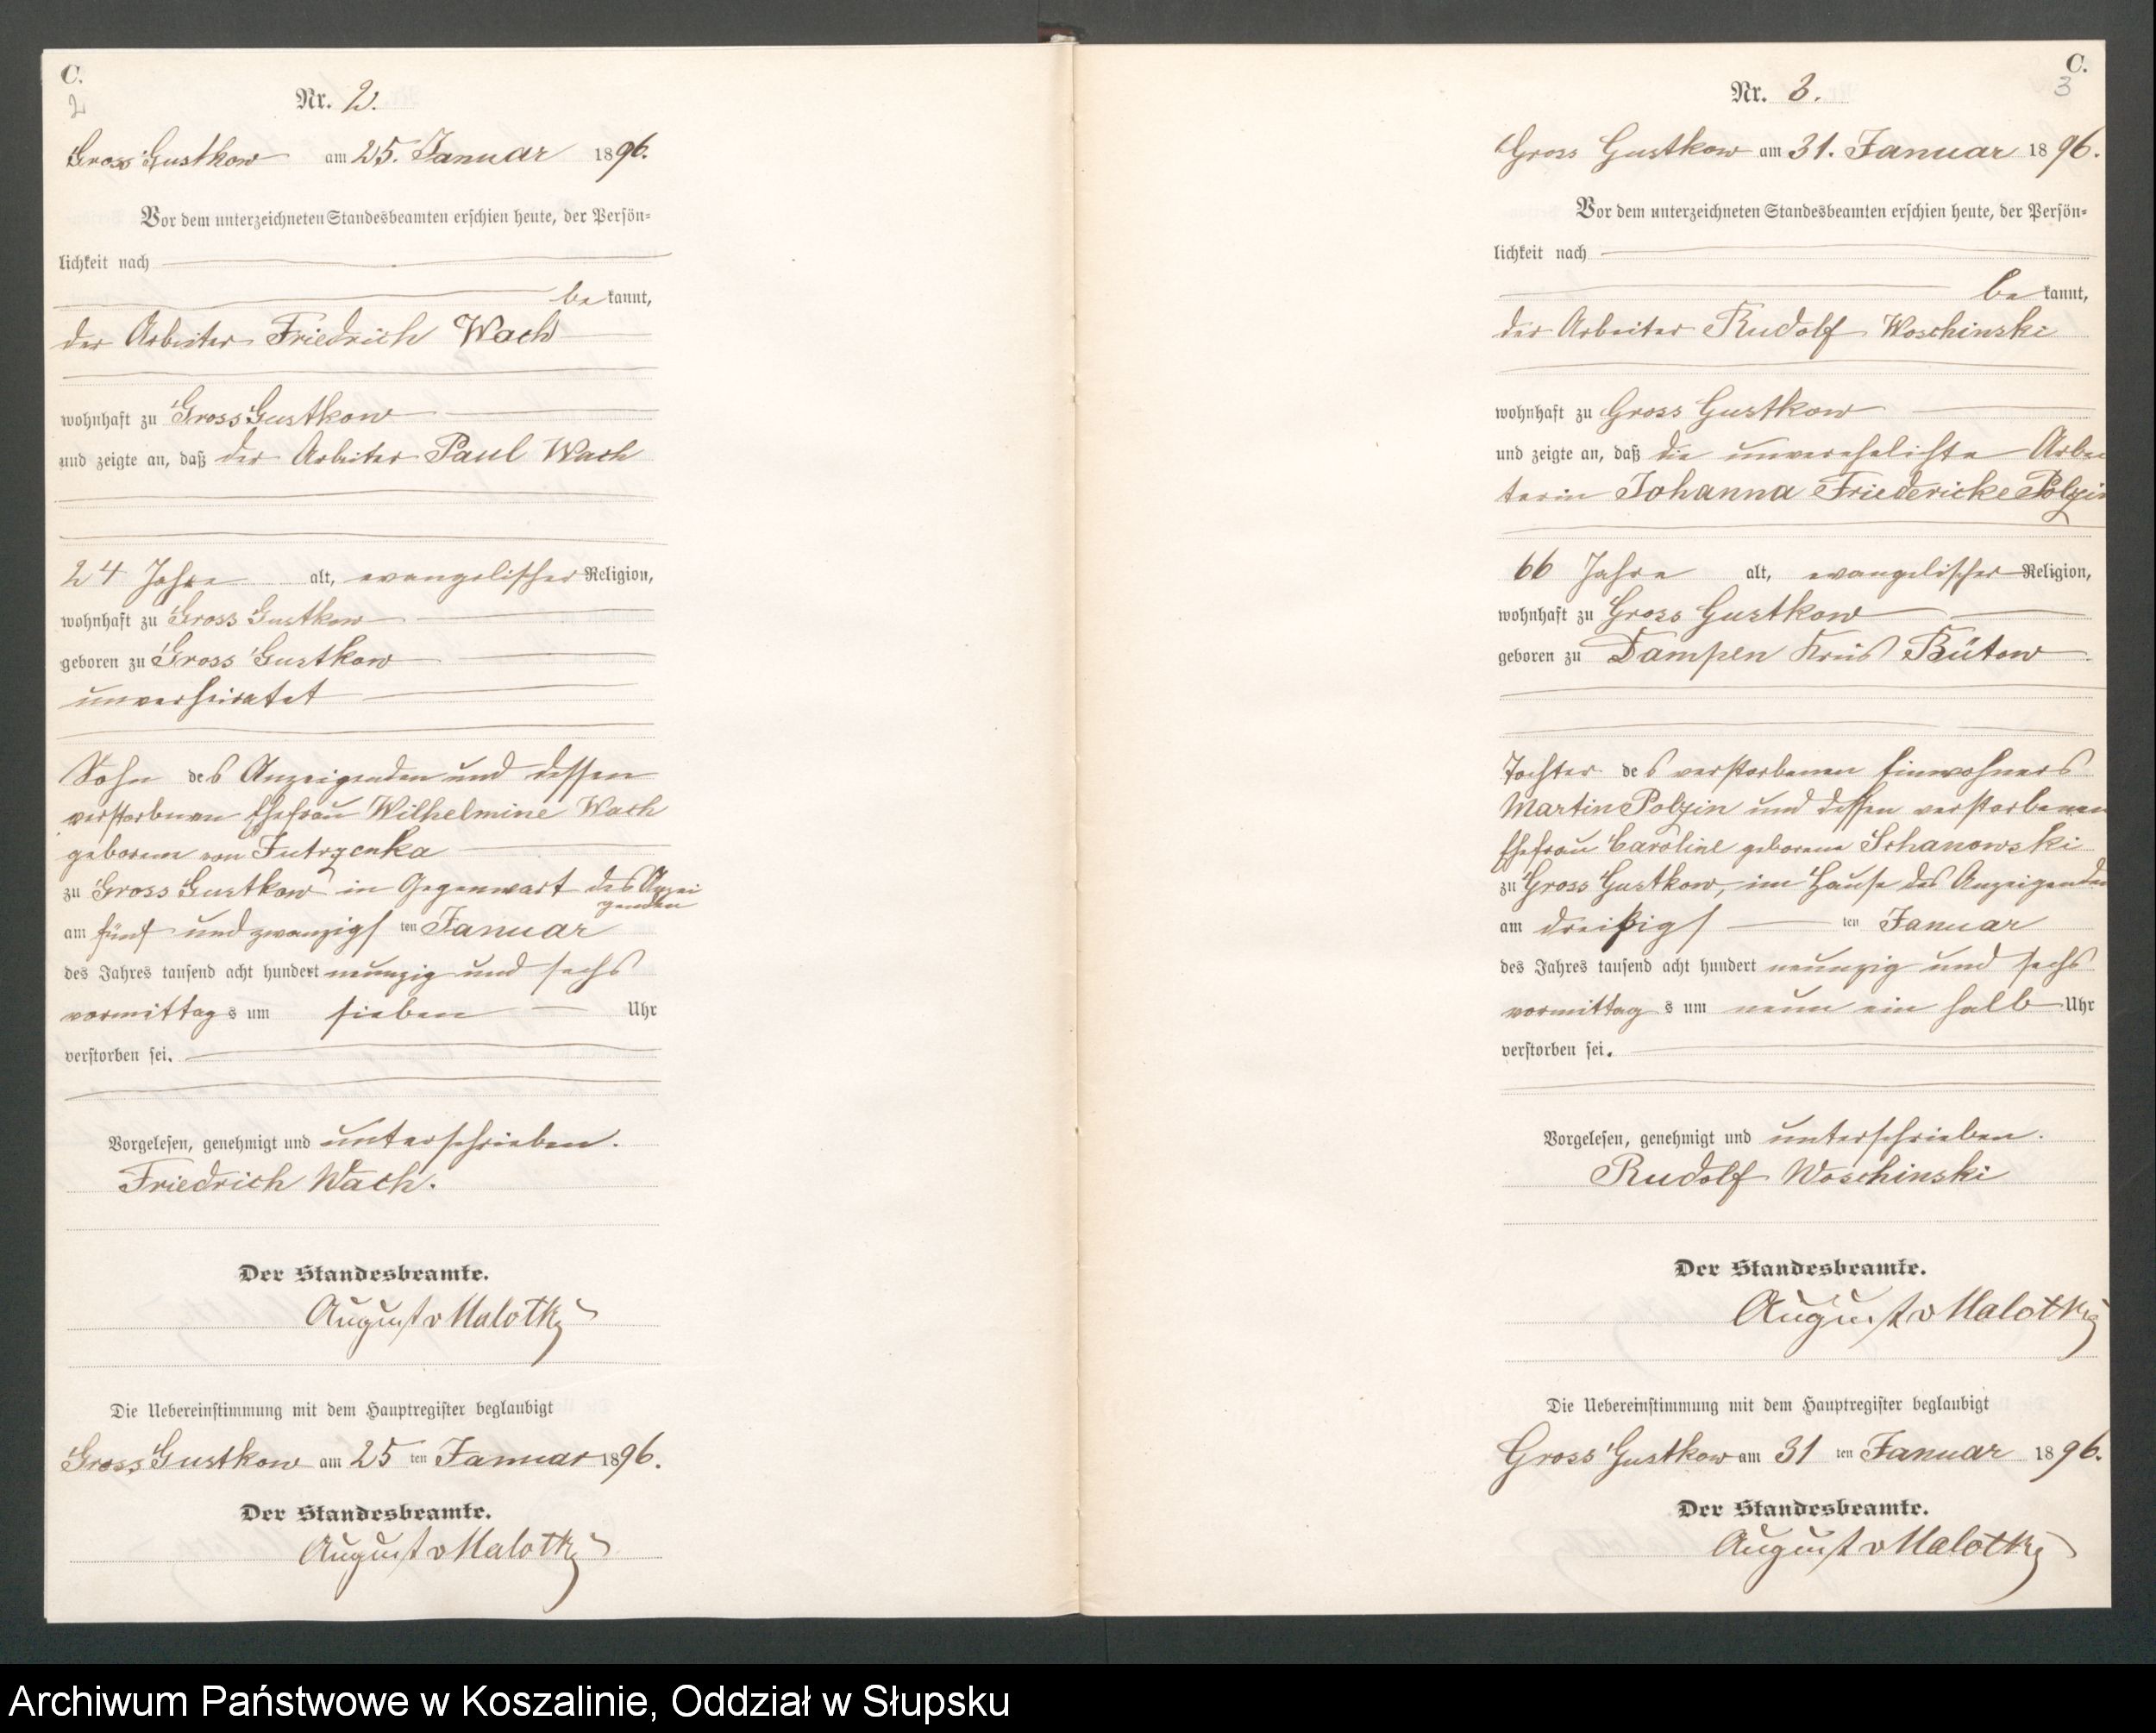 C.
2
Nr. 2.
Gross Gustkow am 25. Januar 1896.
Vor dem unterzeichneten Standesbeamten erschien heute, der Persön-
lichkeit nach
be kannt,
der Arbeiter Friedrich Wach
wohnhaft zu Gross Gustkow
und zeigte an, daß der Arbeiter Paul Wach
24 Jahre alt, evangelischer Religion,
wohnhaft zu Gross Gustkow
geboren zu Gross Gustkow
unverheiratet
Sohn des Anzeigenden und dessen
verstorbenen Ehefrau Wilhelmine Wach
geborene von Jutrzenka
zu Gross Gustkow in Gegenwart des Anzei
genden
am fünf und zwanzigs ten Januar
des Jahres tausend acht hundert neunzig und sechs
vormittag s um sieben Uhr
verstorben sei.
Vorgelesen, genehmigt und unterschrieben.
Friedrich Wach.
Der Standesbeamte.
August v Malotky
Die Uebereinstimmung mit dem Hauptregister beglaubigt
Gross Gustkow am 25 ten Januar 1896.
Der Standesbeamte.
August v Malotky
C.
3
Nr. 3.
Gross Gustkow am 31. Januar 1896.
Vor dem unterzeichneten Standesbeamten erschien heute, der Persön-
lichkeit nach
be kannt,
der Arbeiter Rudolf Woschinski
wohnhaft zu Gross Gustkow
und zeigte an, daß die unverehelichte Arbei
terin Johanna Friedericke Polzin
66 Jahre alt, evangelischer Religion,
wohnhaft zu Gross Gustkow
geboren zu Dampen Kreis Bütow
Tochter des verstorbenen Einwohners
Martin Polzin und dessen verstorbenen
Ehefrau Caroline geborene Schanowski
zu Gross Gustkow, im Hause des Anzeigenden
am dreißigs ten Januar
des Jahres tausend acht hundert neunzig und sechs
vormittag s um neun ein halb Uhr
verstorben sei.
Vorgelesen, genehmigt und unterschrieben.
Rudolf Woschinski
Der Standesbeamte.
August v Malotky
Die Uebereinstimmung mit dem Hauptregister beglaubigt
Gross Gustkow am 31 ten Januar 1896.
Der Standesbeamte.
August v Malotky
Archiwum Państwowe w Koszalinie, Oddział w Słupsku